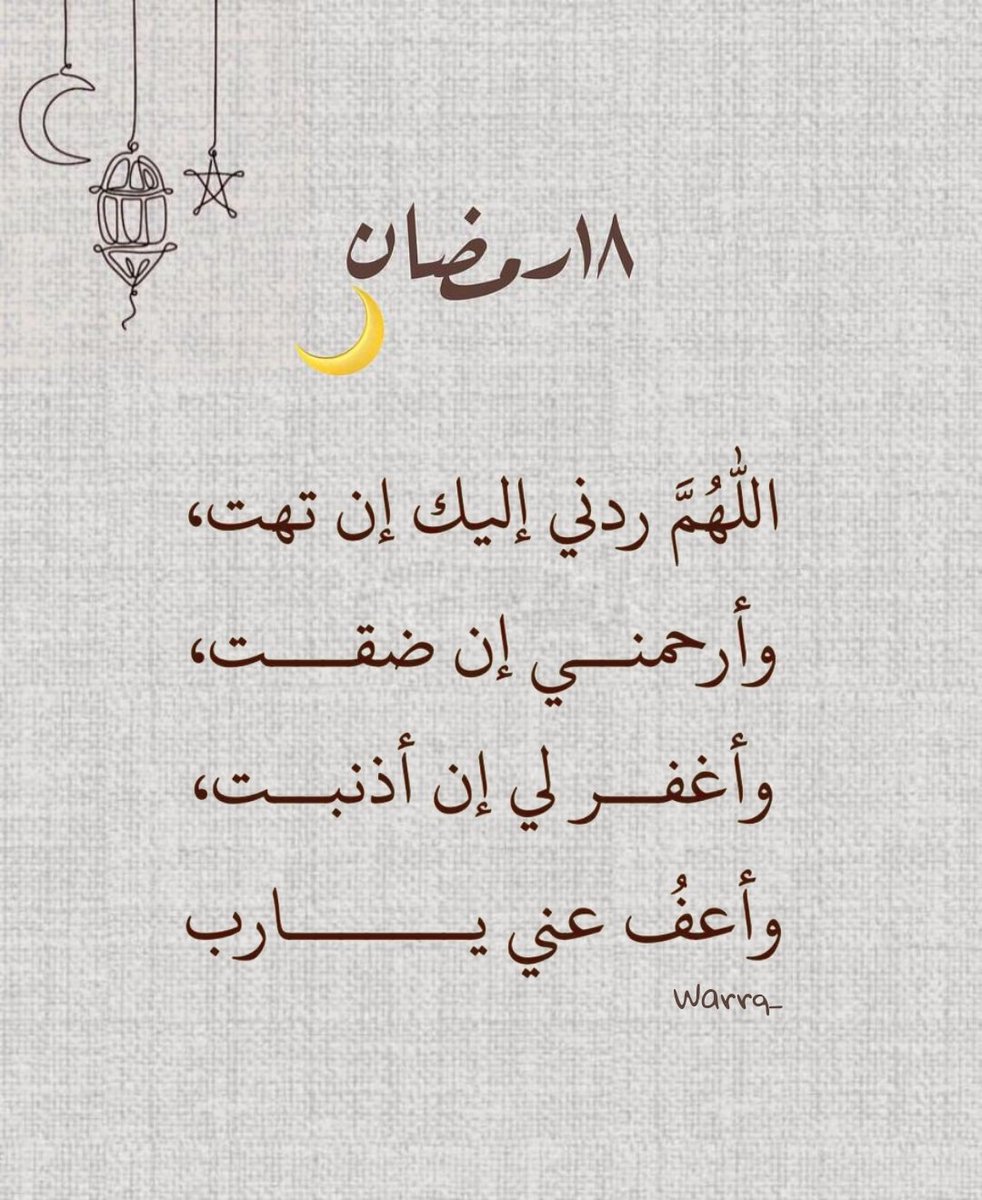 ١٨رمضان
اللّٰهُمَّ ردني إليك إن تهت،
وأرحمنـــي إن ضقـــت،
وأغفـــر لي إن أذنبـــت،
وأعفُ عني يـــــــارب
Warrq_